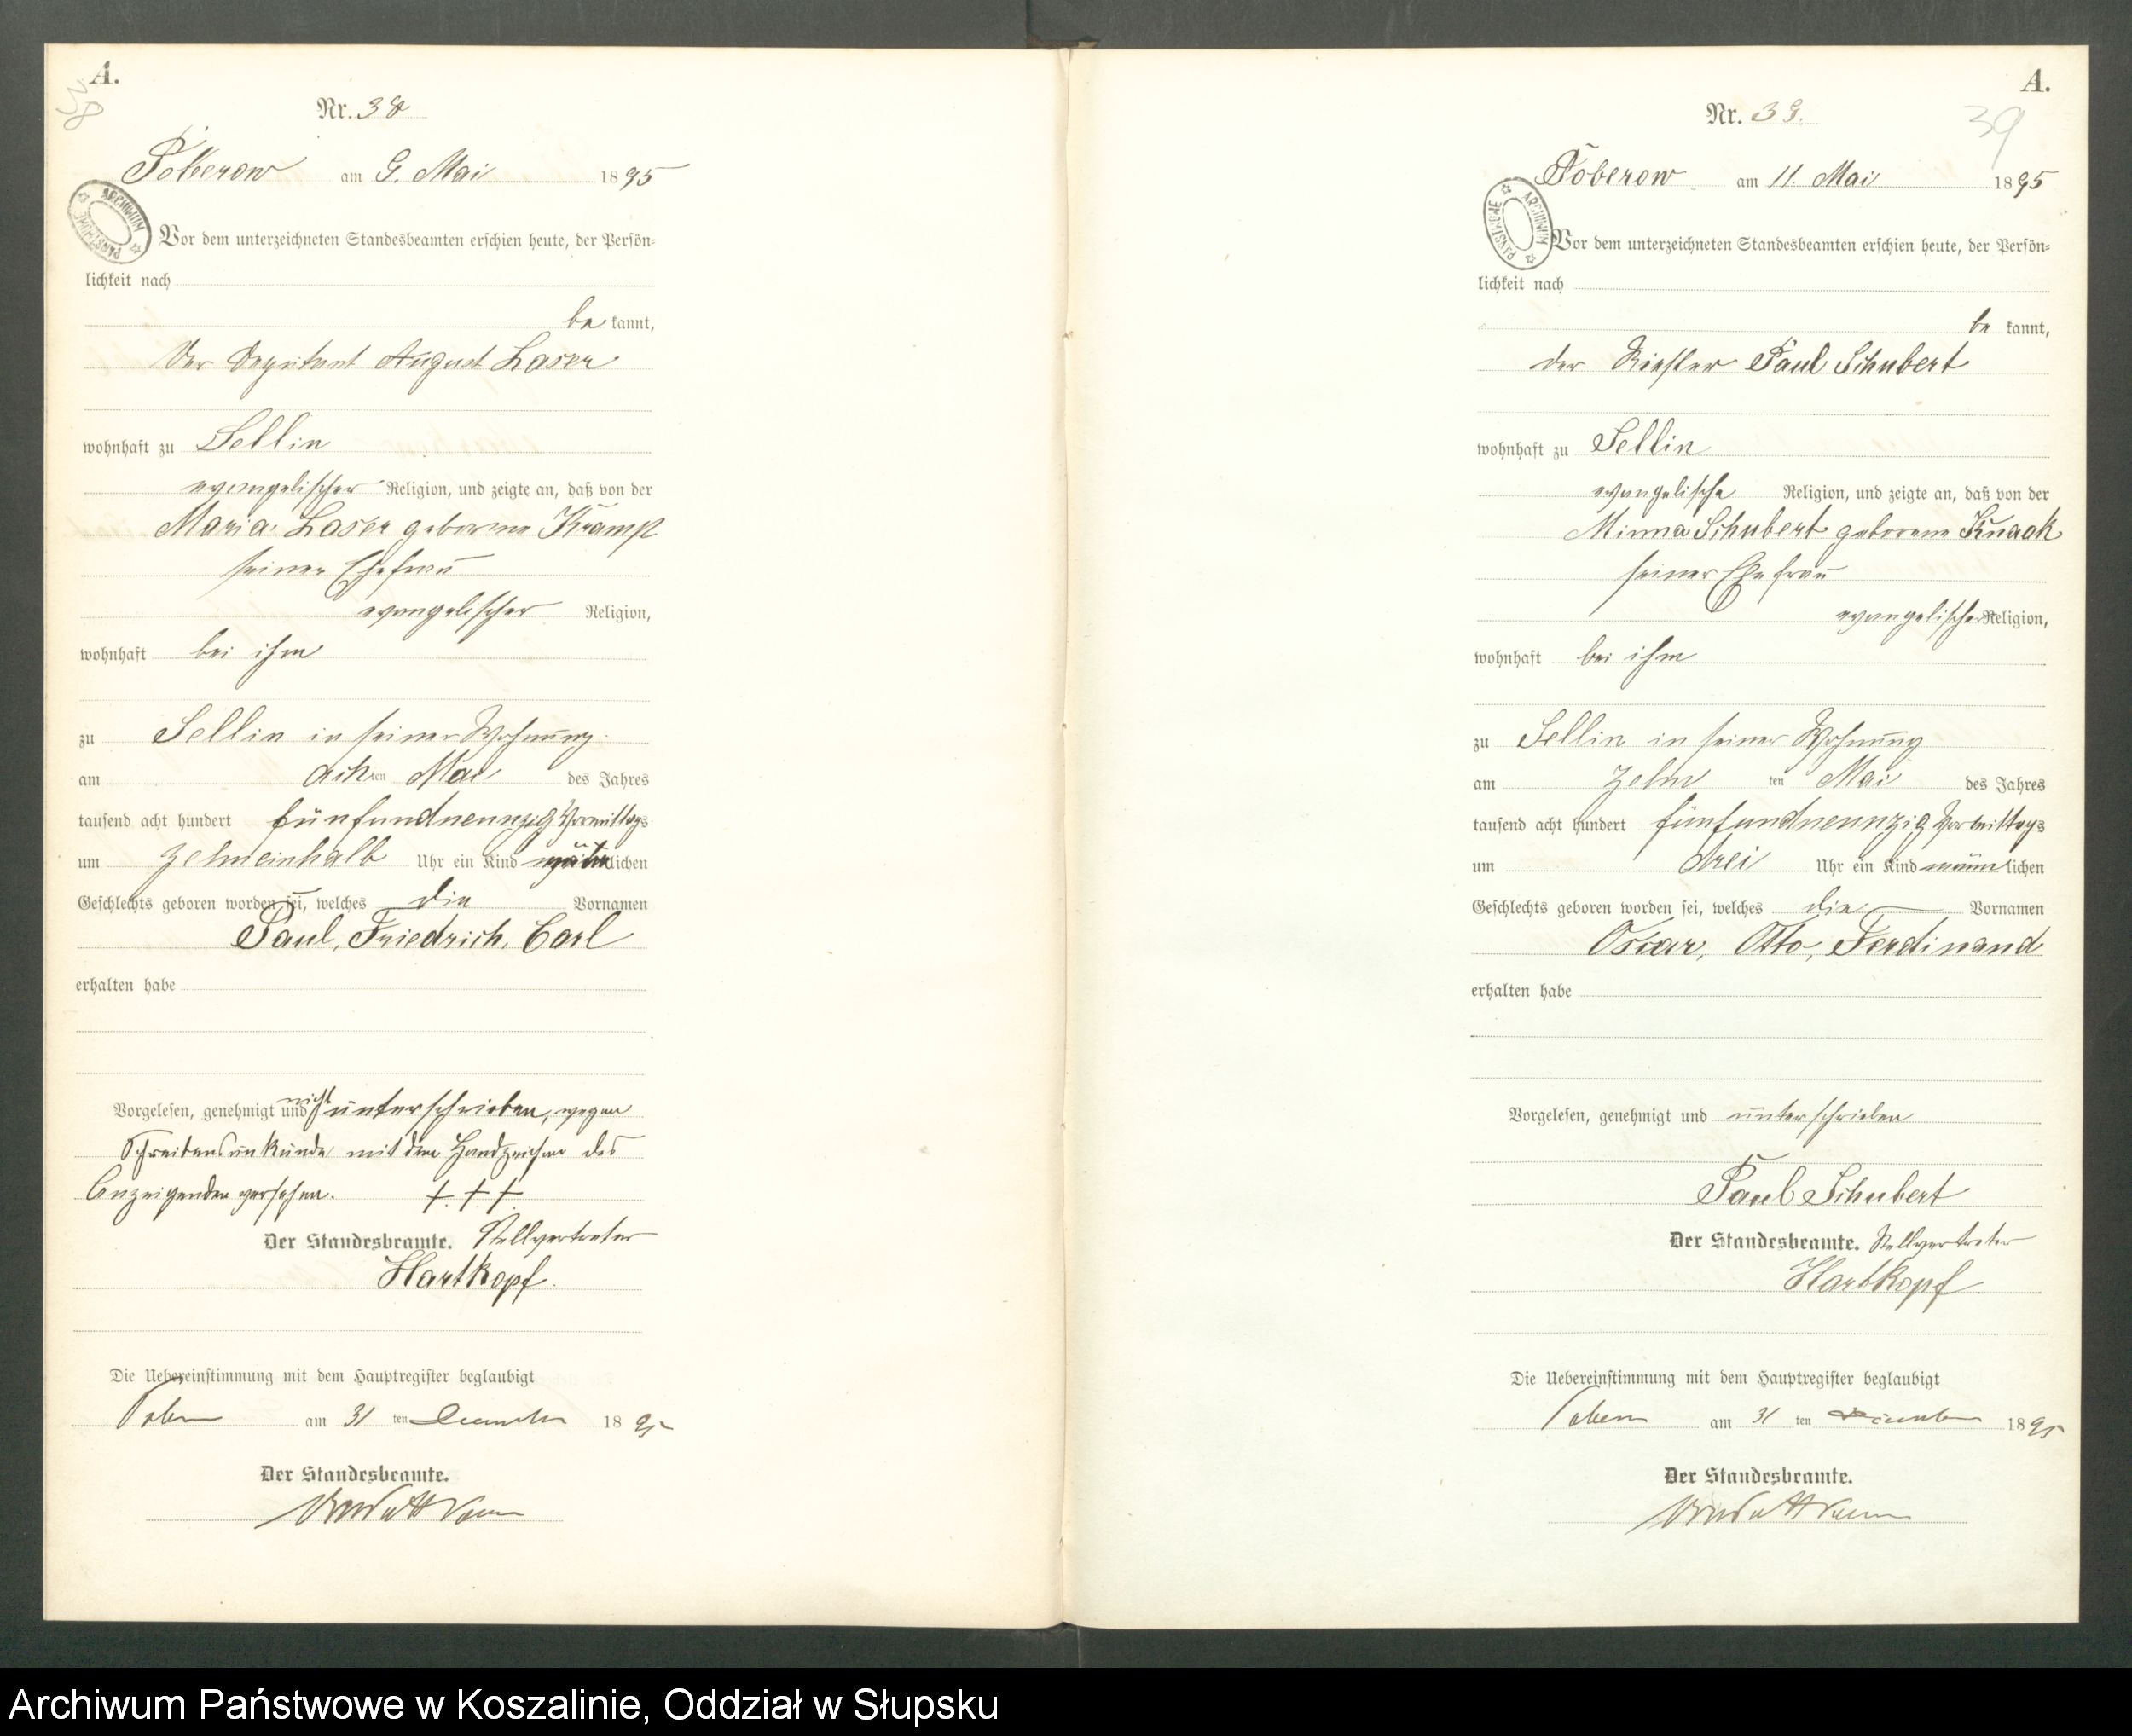 A.
38
Nr. 38
Poberow am 9. Mai 1895
ARCHIWUM PAŃSTWOWE
Vor dem unterzeichneten Standesbeamten erschien heute, der Persön-
lichkeit nach
be kannt,
der Deputant August Laser
wohnhaft zu Sellin
evangelischer Religion, und zeigte an, daß von der
Maria Laser geborene Kramp
seiner Ehefrau
evangelischer Religion,
wohnhaft bei ihm
zu Sellin in seiner Wohnung
am achten Mai des Jahres
tausend acht hundert fünfundneunzig Vormittags
um zehneinhalb Uhr ein Kind männlichen
Geschlechts geboren worden sei, welches die Vornamen
Paul, Friedrich, Carl
erhalten habe
Vorgelesen, genehmigt und nicht unterschrieben, wegen
Schreibensunkunde mit dem Handzeichen des
Anzeigenden versehen. + + +
Der Standesbeamte. Stellvertreter
Hartkopf.
Die Uebereinstimmung mit dem Hauptregister beglaubigt
am 31 ten December 1895
Der Standesbeamte.
A.
39
Nr. 39.
Poberow am 11. Mai 1895
ARCHIWUM PAŃSTWOWE
Vor dem unterzeichneten Standesbeamten erschien heute, der Persön-
lichkeit nach
be kannt,
der Paul Schubert
wohnhaft zu Sellin
evangelische Religion, und zeigte an, daß von der
Minna Schubert geborene Knaak
seiner Ehefrau
evangelischer Religion,
wohnhaft bei ihm
zu Sellin in seiner Wohnung
am zehn ten Mai des Jahres
tausend acht hundert fünfundneunzig Vormittags
um drei Uhr ein Kind männlichen
Geschlechts geboren worden sei, welches die Vornamen
Oscar, Otto, Ferdinand
erhalten habe
Vorgelesen, genehmigt und unterschrieben
Paul Schubert
Der Standesbeamte. Stellvertreter
Hartkopf.
Die Uebereinstimmung mit dem Hauptregister beglaubigt
am 31 ten December 1895
Der Standesbeamte.
Archiwum Państwowe w Koszalinie, Oddział w Słupsku